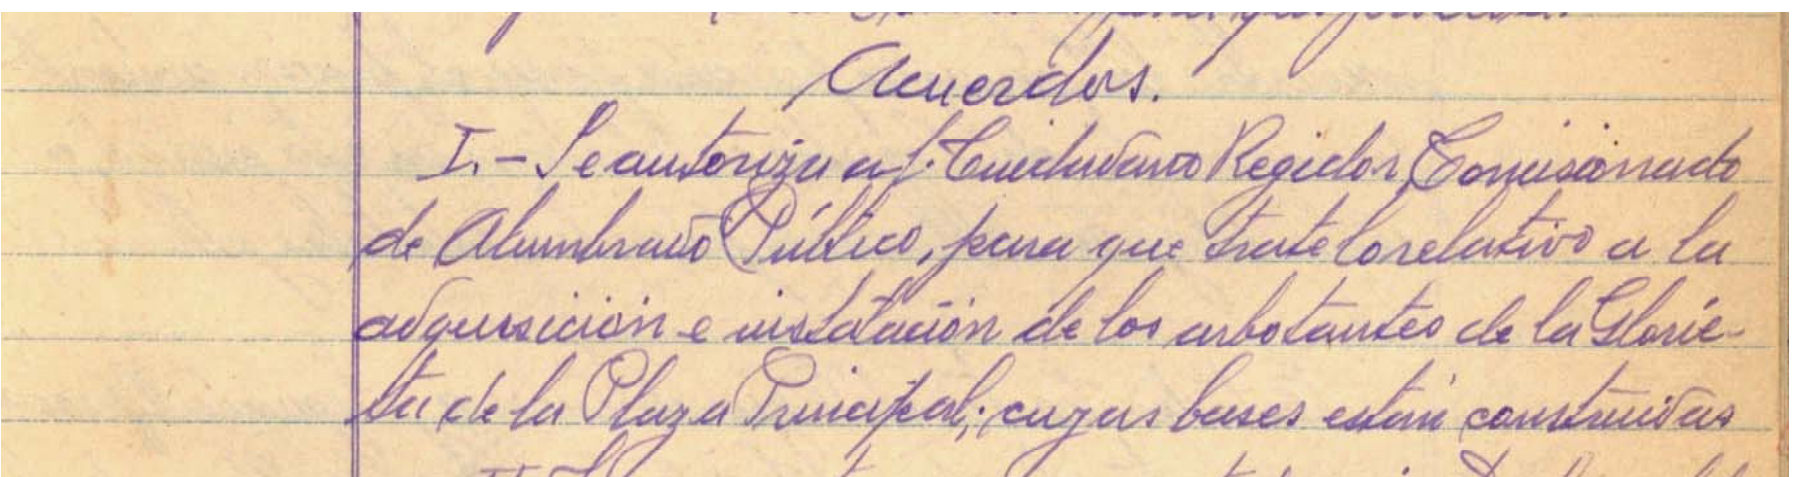 Acuerdos.
I.- Se autoriza al Ciudadano Regidor, Comisionado
de Alumbrado Público, para que trate lo relativo a la
adquisición e instalación de los arbotantes de la Glorie-
ta de la Plaza Principal; cuyas bases están construidas